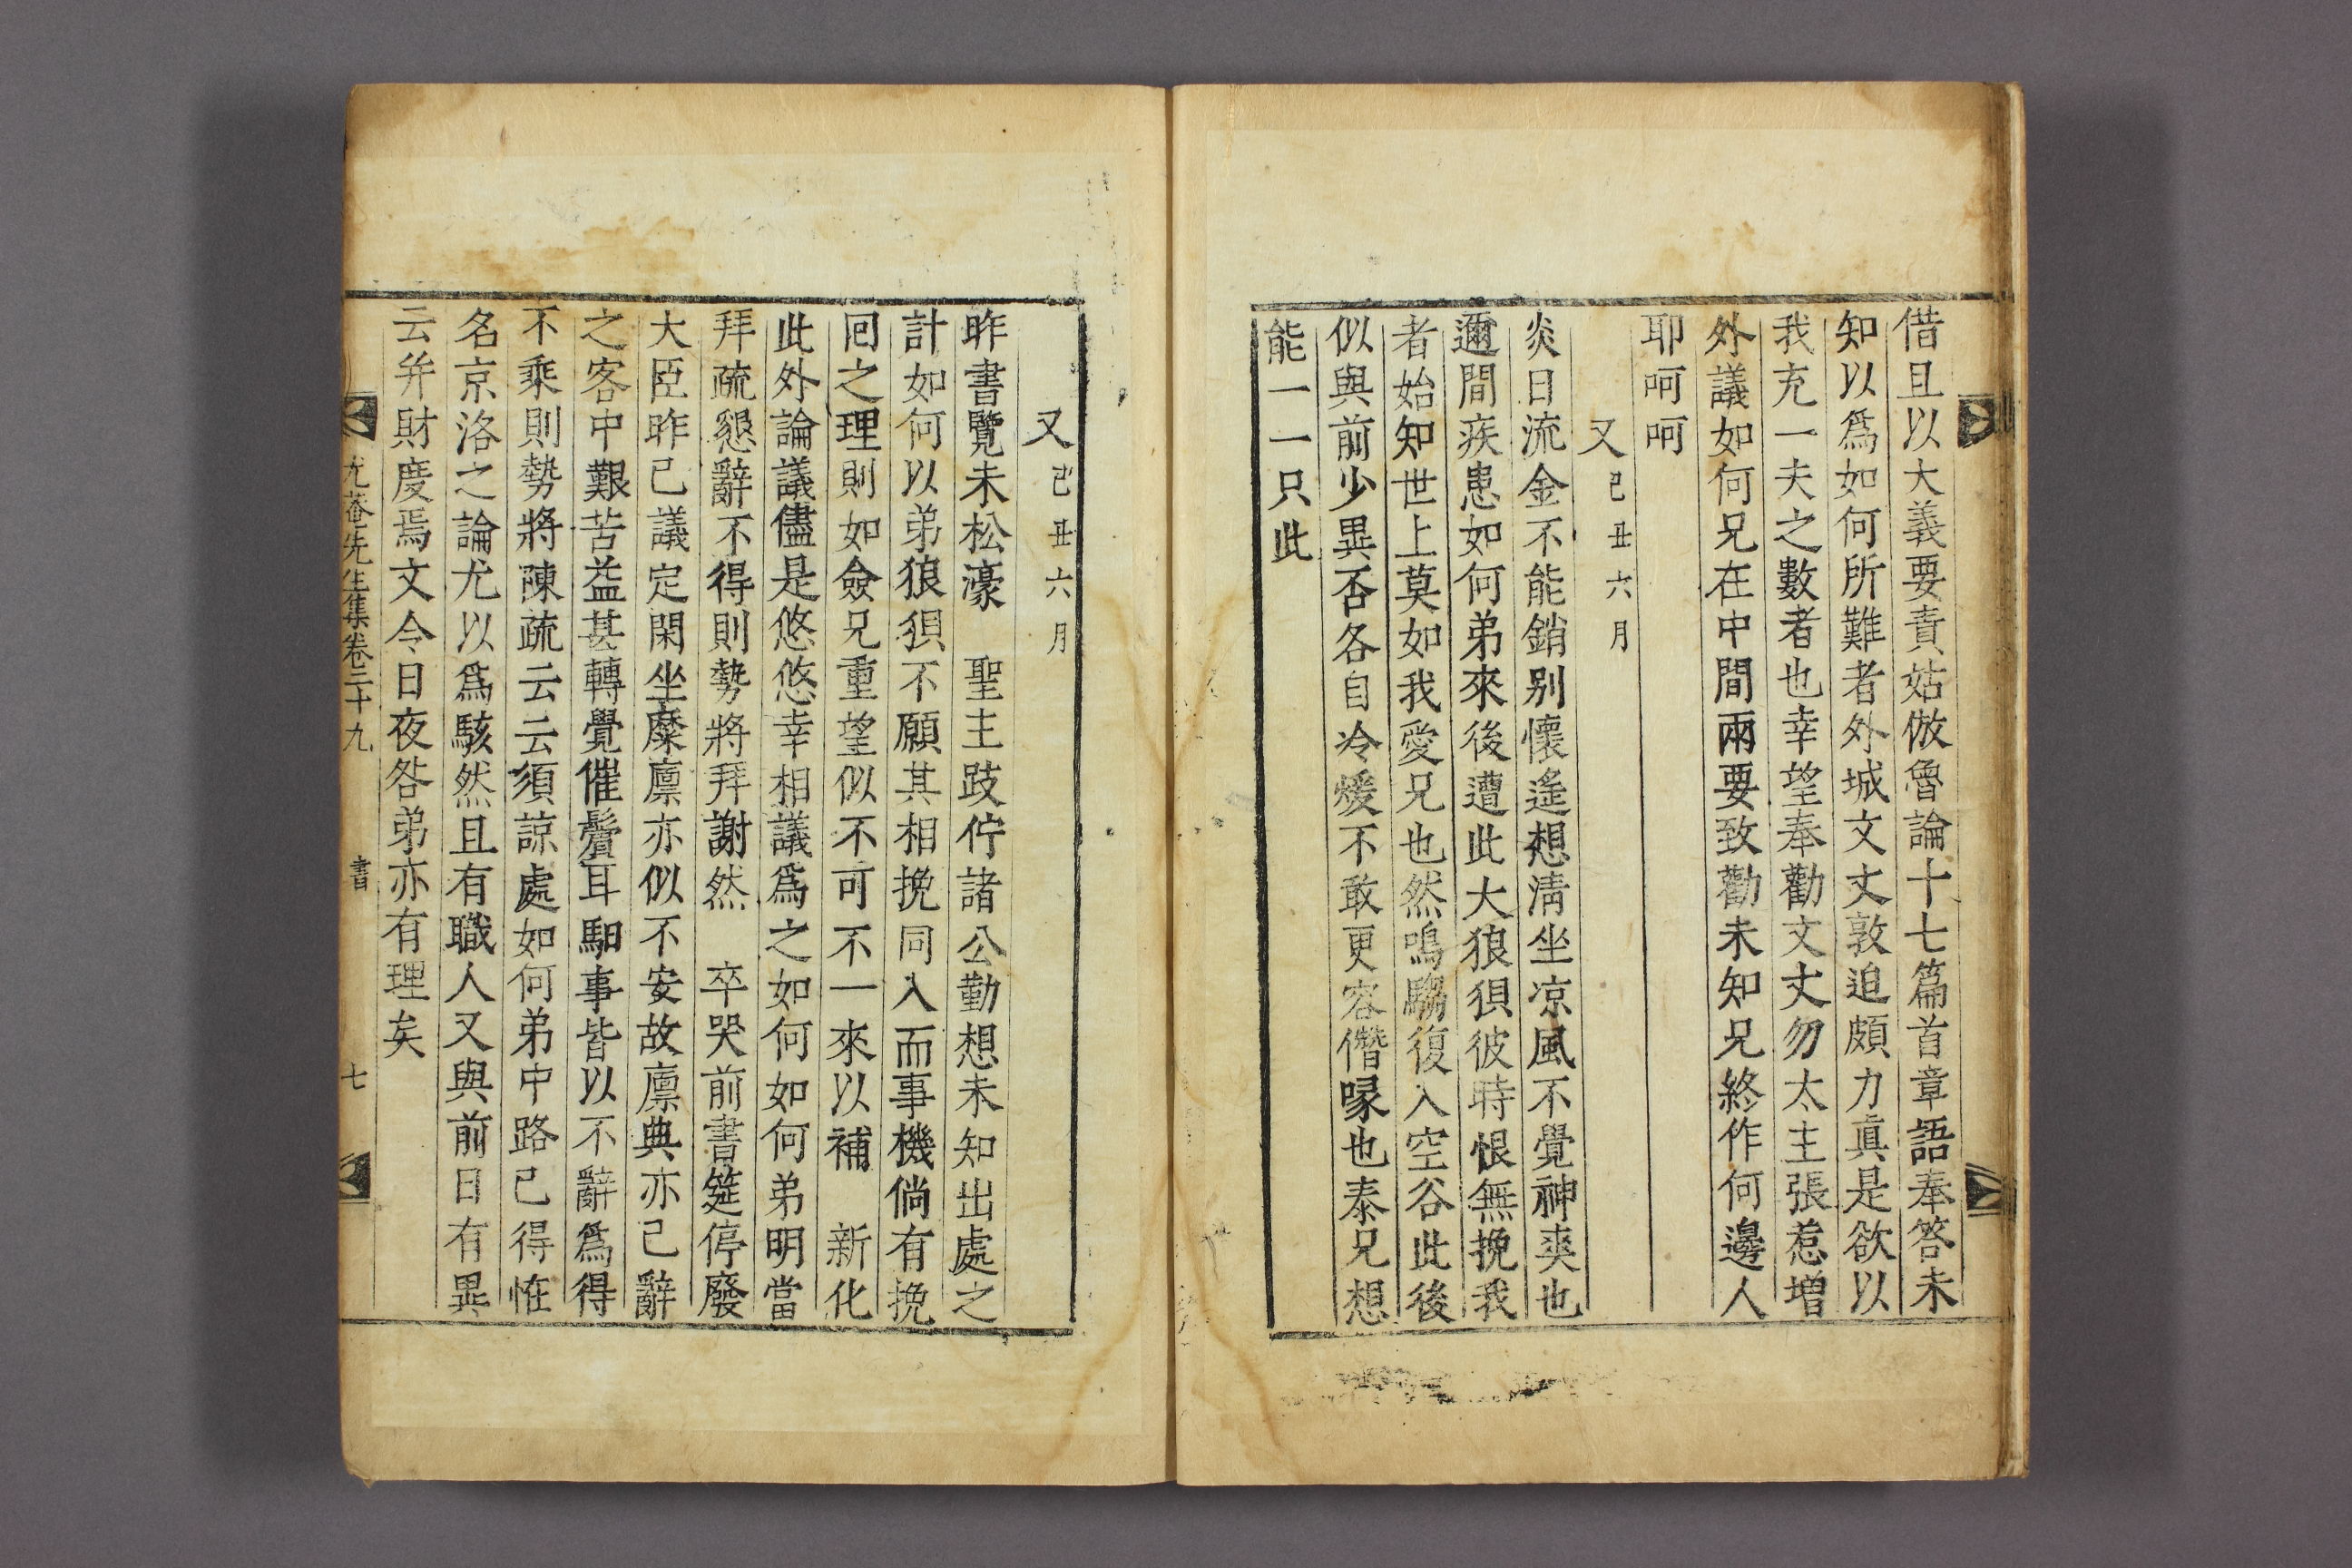 借且以大義要責姑倣魯論十七篇首章語奉答未
知以爲如何所難者外城文丈敦迫頗力眞是欲以
我充一夫之數者也幸望奉勸文丈勿太主張惹增
外議如何兄在中間兩要致勸未知兄終作何邊人
耶呵呵
又 己丑六月
炎日流金不能銷别懷遙想淸坐凉風不覺神爽也
邇間疾患如何弟來後遭此大狼狽彼時恨無挽我
者始知世上莫如我愛兄也然鳴騶復入空谷此後
似與前少異否各自冷煖不敢更容僭喙也泰兄想
能一一只此
又 己丑六月
昨書覽未松濠 聖主跂佇諸公勤想未知出處之
計如何以弟狼狽不願其相挽同入而事機倘有挽
回之理則如僉兄重望似不可不一來以補 新化
此外論議儘是悠悠幸相議爲之如何如何弟明當
拜疏懇辭不得則勢將拜謝然 卒哭前書筵停廢
大臣昨已議定閑坐糜廩亦似不安故廩典亦已辭
之客中艱苦益甚轉覺催鬢耳馹事皆以不辭爲得
不乘則勢將陳疏云云須諒處如何弟中路已得恠
名京洛之論尤以爲駭然且有職人又與前日有異
云幷財度焉文令日夜咎弟亦有理矣
尤菴先生集卷三十九 書 七